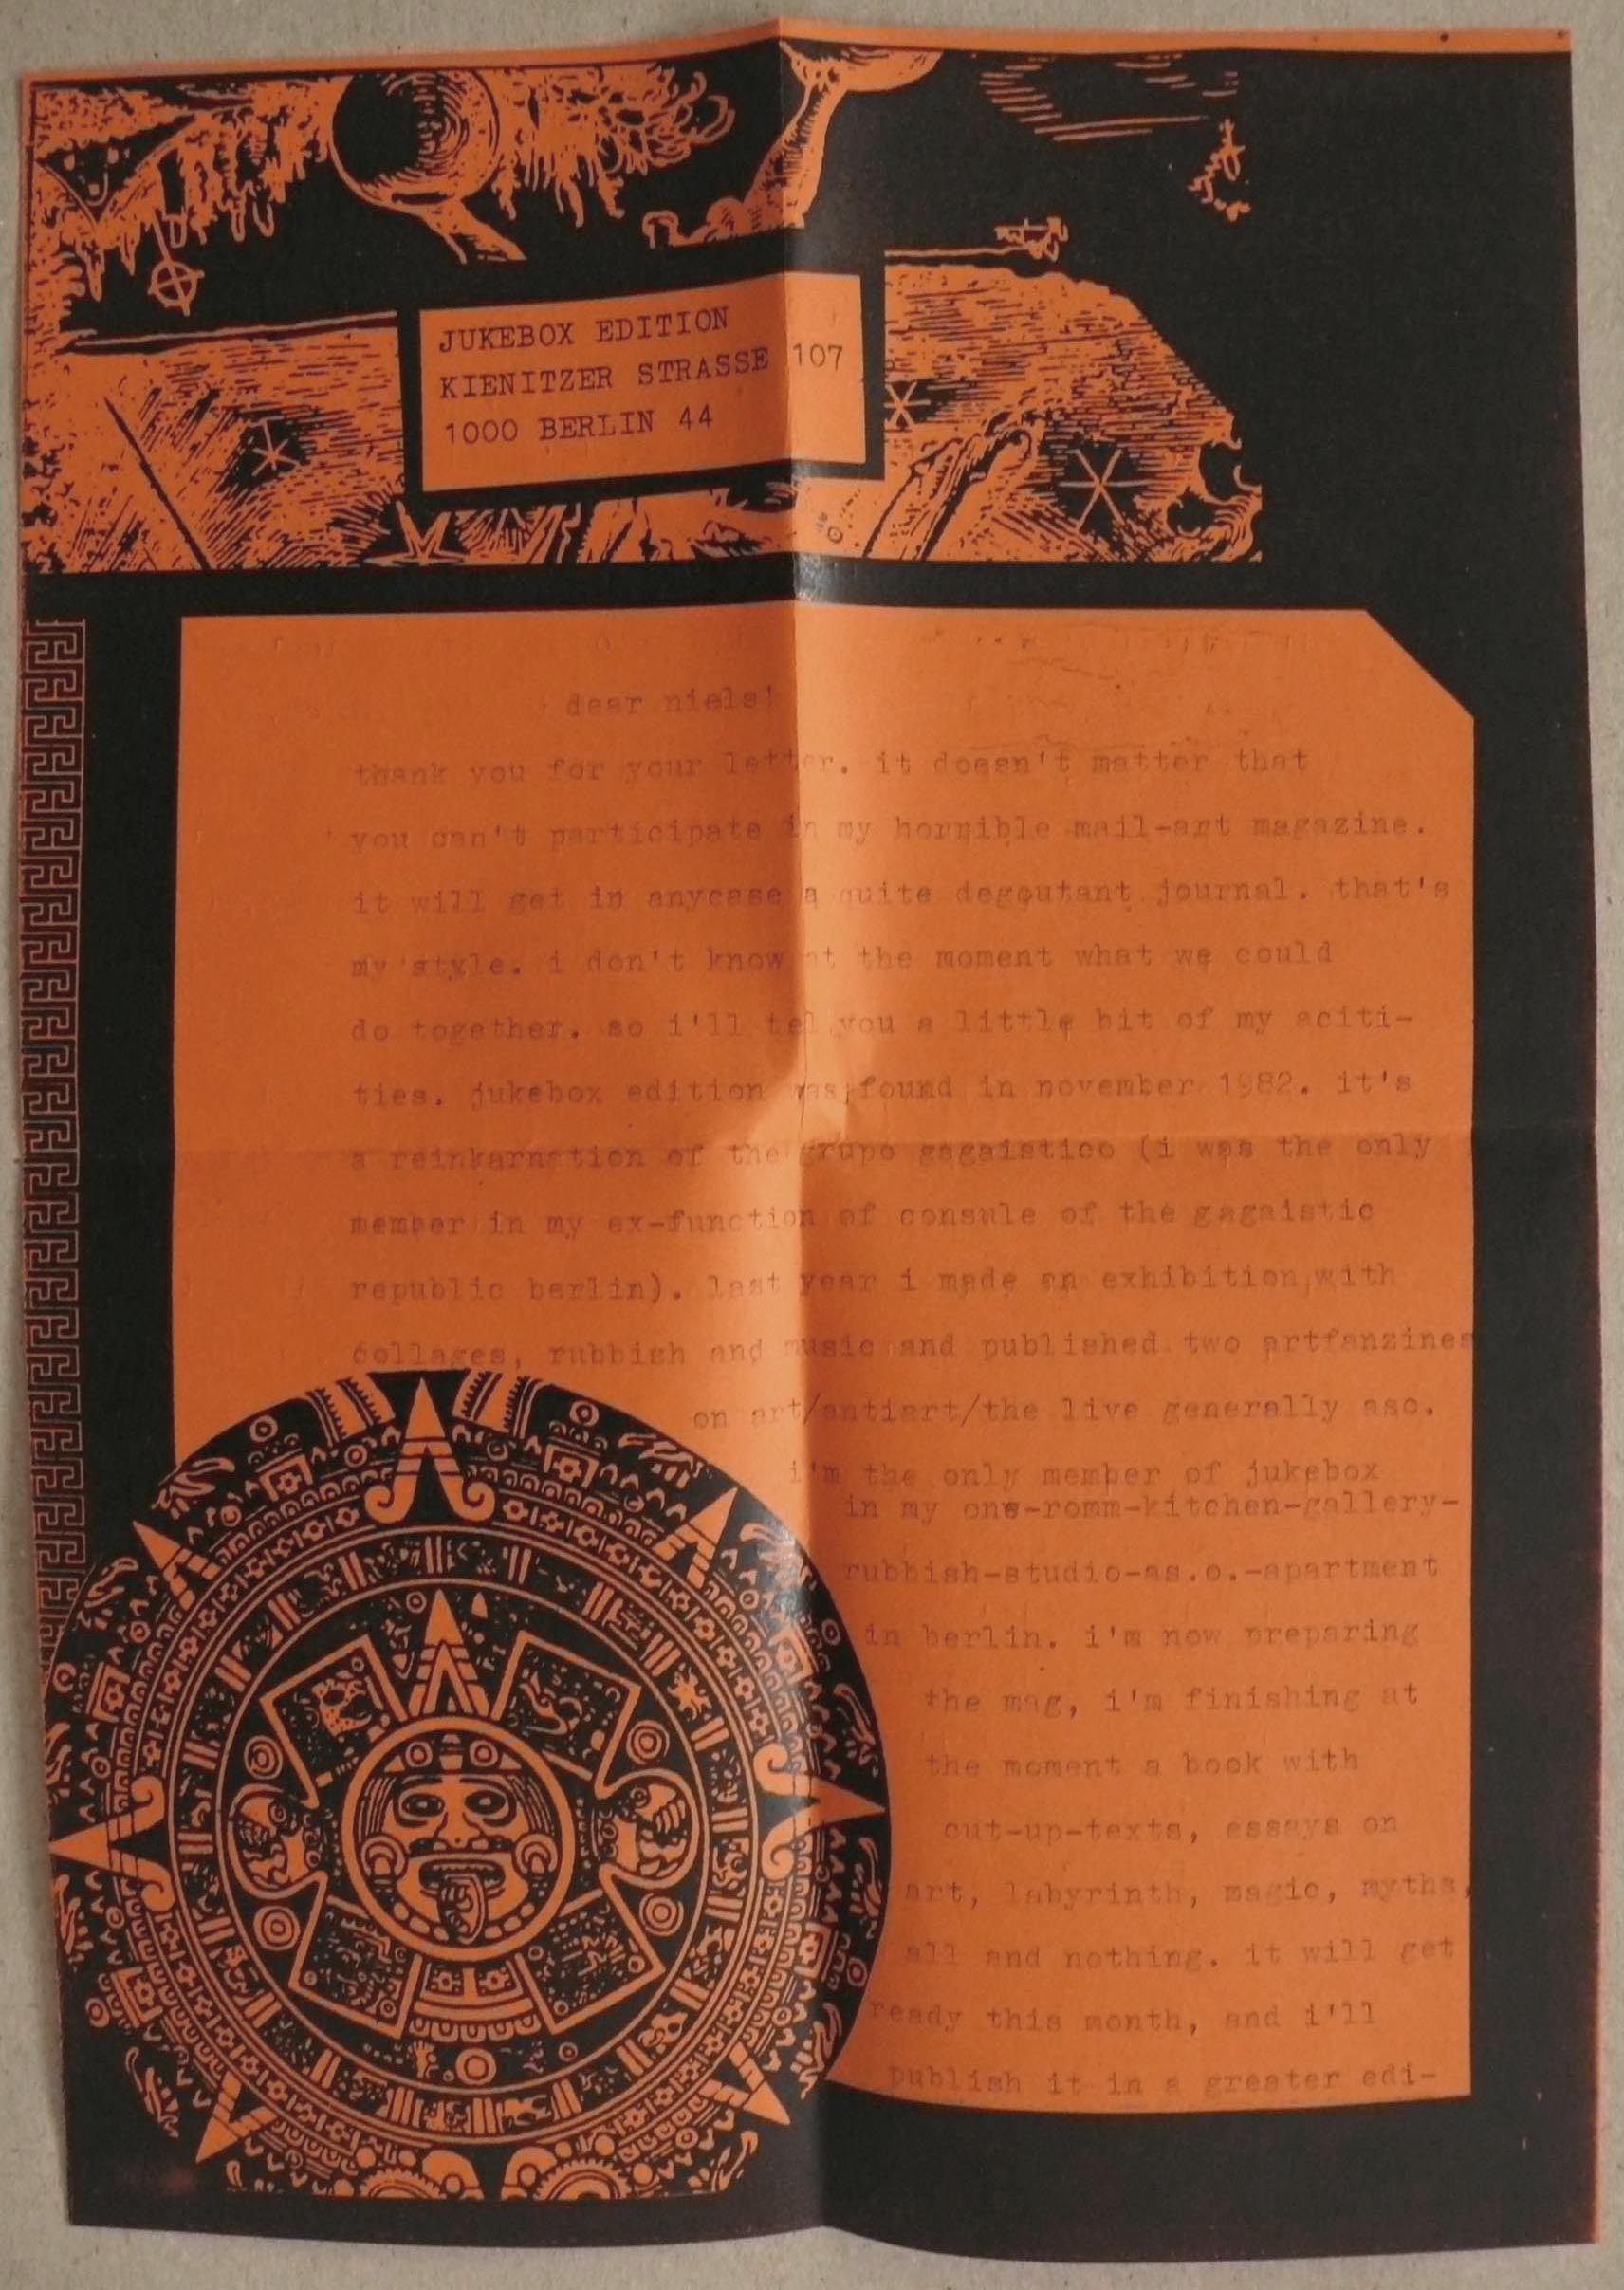 JUKEBOX EDITION
KIENITZER STRASSE 107
1000 BERLIN 44
dear niels!
thank you for your letter. it doesn't matter that
you can't participate in my horrible mail-art magazine.
it will get in anycase a quite degoutant journal. that's
my style. i don't know at the moment what we could
do together. so i'll tel you a little bit of my aciti-
ties. jukebox edition was found in november 1982. it's
a reinkarnation of the grupo gagaistico (i was the only
member in my ex-function of consule of the gagaistic
republic berlin). last year i made an exhibition with
collages, rubbish and music and published two artfanzines
on art/antiart/the live generally aso.
i'm the only member of jukebox
in my one-romm-kitchen-gallery-
rubbish-studio-as.o.-apartment
in berlin. i'm now preparing
the mag, i'm finishing at
the moment a book with
cut-up-texts, essays on
art, labyrinth, magic, myths,
all and nothing. it will get
ready this month, and i'll
publish it in a greater edi-